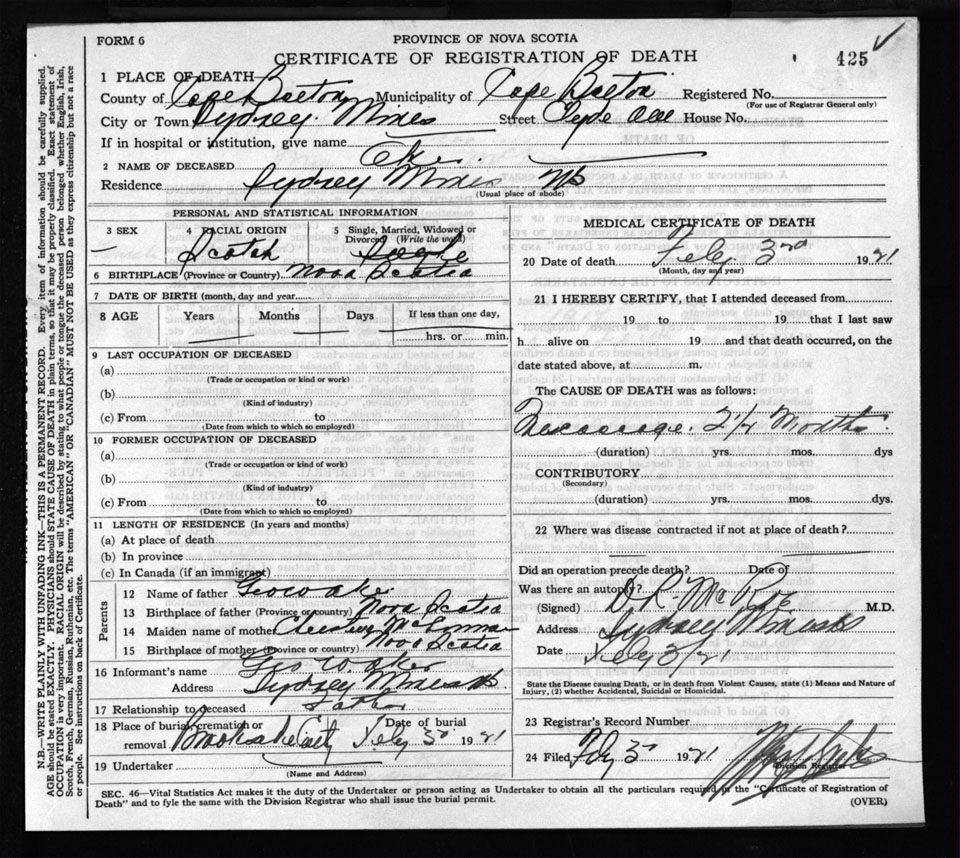 FORM 6
PROVINCE OF NOVA SCOTIA
CERTIFICATE OF REGISTRATION OF DEATH
125
1 PLACE OF DEATH
County of Cape Breton Municipality of Cape Breton Registered No.
(For use of Registrar General only)
City or Town Sydney Mines Street Clyde Ave House No.
If in hospital or institution, give name
2 NAME OF DECEASED Aker
Residence Sydney Mines NS
(Usual place of abode)
PERSONAL AND STATISTICAL INFORMATION
3 SEX
4 RACIAL ORIGIN
5 Single, Married, Widowed or Divorced (Write the word)
Scotch Single
6 BIRTHPLACE (Province or Country) Nova Scotia
7 DATE OF BIRTH (month, day and year
8 AGE Years Months Days If less than one day,
hrs. or min.
9 LAST OCCUPATION OF DECEASED
(a)
(Trade or occupation or kind or work)
(b)
(Kind of industry)
(c) From to
(Date from which to which so employed)
10 FORMER OCCUPATION OF DECEASED
(a)
(Trade or occupation or kind of work)
(b)
(Kind of industry)
(c) From to
(Date from which to which so employed)
11 LENGTH OF RESIDENCE (In years and months)
(a) At place of death
(b) In province
(c) In Canada (if an immigrant)
Parents
12 Name of father Geo W Aker
13 Birthplace of father (Province or country) Nova Scotia
14 Maiden name of mother
15 Birthplace of mother (Province or country) Nova Scotia
16 Informant's name Geo W Aker
Address Sydney Mines NS
17 Relationship to deceased Father
18 Place of burial, cremation or removal Date of burial Feby 3rd 1921
19 Undertaker
(Name and Address)
MEDICAL CERTIFICATE OF DEATH
20 Date of death Feby 3rd 1921
(Month, day and year)
21 I HEREBY CERTIFY, that I attended deceased from
19 to 19 that I last saw
h alive on 19 and that death occurred, on the
date stated above, at m.
The CAUSE OF DEATH was as follows:
Miscarriage. 2½ Months
(duration) yrs. mos. dys
CONTRIBUTORY
(Secondary)
(duration) yrs. mos. dys.
22 Where was disease contracted if not at place of death?
Did an operation precede death? Date of
Was there an autopsy?
(Signed) M.D.
Address Sydney Mines NS
Date Feby 3/21
State the Disease causing Death, or in death from Violent Causes, state (1) Means and Nature of
Injury, (2) whether Accidental, Suicidal or Homicidal.
23 Registrar's Record Number
24 Filed Feby 3rd 1921
Division Registrar
SEC. 46—Vital Statistics Act makes it the duty of the Undertaker or person acting as Undertaker to obtain all the particulars required in the "Certificate of Registration of
Death" and to fyle the same with the Division Registrar who shall issue the burial permit.
(OVER)
N.B.—WRITE PLAINLY WITH UNFADING INK—THIS IS A PERMANENT RECORD. Every item of information should be carefully supplied.
AGE should be stated EXACTLY. PHYSICIANS should STATE CAUSE OF DEATH in plain terms, so that it may be properly classified. Exact statement of
OCCUPATION is very important. RACIAL ORIGIN will be described by stating to what people or tongue the deceased person belonged whether English, Irish,
Scotch, French, German, Russian, Ruthenian, etc. The terms "AMERICAN" OR "CANADIAN" MUST NOT BE USED as they express citizenship but not a race
or people. See instructions on back of Certificate.